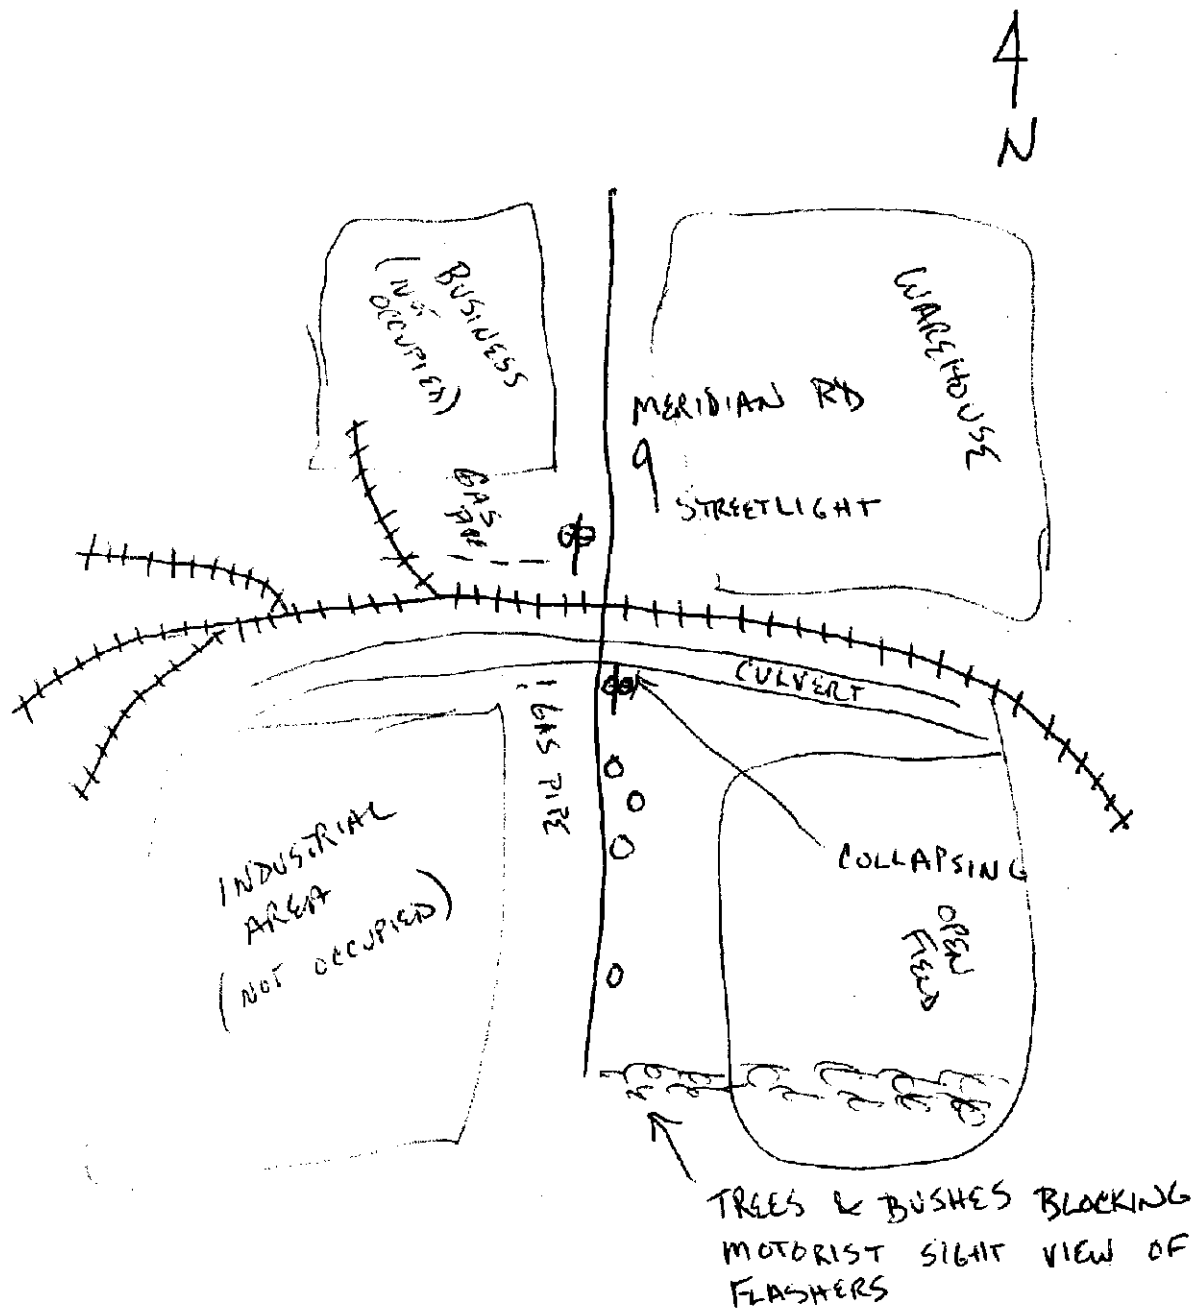 N
BUSINESS
(NOT
OCCUPIED)
WAREHOUSE
MERIDIAN RD
STREETLIGHT
GAS
PIPE
CULVERT
GAS PIPE
COLLAPSING
INDUSTRIAL
AREA
(NOT OCCUPIED)
OPEN
FIELD
TREES & BUSHES BLOCKING
MOTORIST SIGHT VIEW OF
FLASHERS